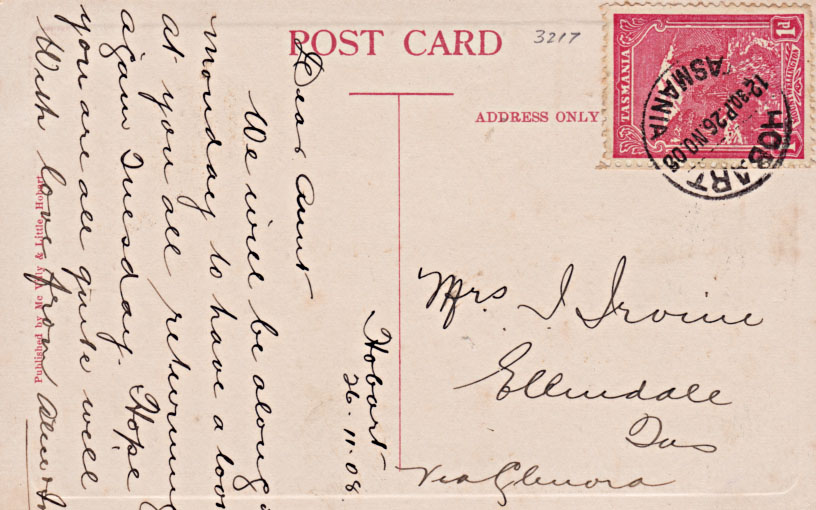 POST CARD
3217
ADDRESS ONLY
TASMANIA
1D
HOBART
12 30 P 26 NO 08
TASMANIA
Hobart
26.11.08
Dear Aunt
We will be along
monday to have a look
at you all returning
again Tuesday. Hope
you are all quite well
With love from
Mrs J Irvine
Ellendale
Tas
Via Glenora
Published by Mc & Little, Hobart